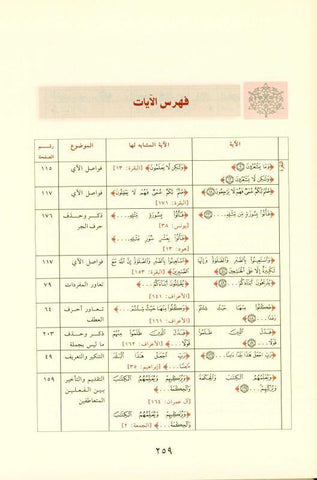 فهرس الآيات
الآية الآية المشابه لها الموضوع رقم الصفحة
﴿وَمَا يَشْعُرُونَ﴾ ﴿وَلَكِن لَّا يَعْلَمُونَ﴾ [البقرة: ١٣] فواصل الآي ١١٥
﴿وَلَكِن لَّا يَشْعُرُونَ﴾
﴿صُمٌّ بُكْمٌ عُمْيٌ فَهُمْ لَا يَرْجِعُونَ﴾ ﴿صُمٌّ بُكْمٌ عُمْيٌ فَهُمْ لَا يَعْقِلُونَ﴾ فواصل الآي ١١٧
[البقرة: ١٧١]
﴿فَأْتُوا بِسُورَةٍ مِّن مِّثْلِهِ...﴾ ﴿فَأْتُوا بِسُورَةٍ مِّثْلِهِ...﴾ ذكر وحذف ١٧٦
[يونس: ٣٨] حرف الجر
﴿فَأْتُوا بِعَشْرِ سُوَرٍ مِّثْلِهِ...﴾
[هود: ١٣]
﴿وَاسْتَعِينُوا بِالصَّبْرِ وَالصَّلَاةِ وَإِنَّهَا ﴿اسْتَعِينُوا بِالصَّبْرِ وَالصَّلَاةِ إِنَّ اللَّهَ مَعَ فواصل الآي ١١٧
لَكَبِيرَةٌ إِلَّا عَلَى الْخَاشِعِينَ﴾ الصَّابِرِينَ﴾ [البقرة: ١٥٣]
﴿يُذَبِّحُونَ أَبْنَاءَكُمْ...﴾ ﴿يُقَتِّلُونَ أَبْنَاءَكُمْ...﴾ تعاور المفردات ٧٩
[الأعراف: ١٤١]
﴿فَكُلُوا مِنْهَا حَيْثُ شِئْتُمْ ﴿وَكُلُوا مِنْهَا حَيْثُ شِئْتُمْ...﴾ تعاور أحرف ٦٤
[الأعراف: ١٦١] العطف
﴿فَبَدَّلَ الَّذِينَ ظَلَمُوا ﴿فَبَدَّلَ الَّذِينَ ظَلَمُوا مِنْهُمْ ذكر وحذف ٢٠٣
[الأعراف: ١٦٢] ما ليس بجملة
﴿رَبِّ اجْعَلْ هَذَا بَلَدًا آمِنًا...﴾ ﴿رَبِّ اجْعَلْ هَذَا الْبَلَدَ التنكير والتعريف ٤٩
آمِنًا...﴾ [إبراهيم: ٣٥]
﴿وَيُعَلِّمُهُمُ الْكِتَابَ وَالْحِكْمَةَ ﴿وَيُزَكِّيهِمْ وَيُعَلِّمُهُمُ الْكِتَابَ التقديم والتأخير ١٥٩
وَيُزَكِّيهِمْ...﴾ وَالْحِكْمَةَ...﴾ بين الفعلين
[آل عمران: ١٦٤] المتعاطفين
﴿وَيُزَكِّيهِمْ وَيُعَلِّمُهُمُ الْكِتَابَ
وَالْحِكْمَةَ...﴾ [الجمعة: ٢]
٢٥٩